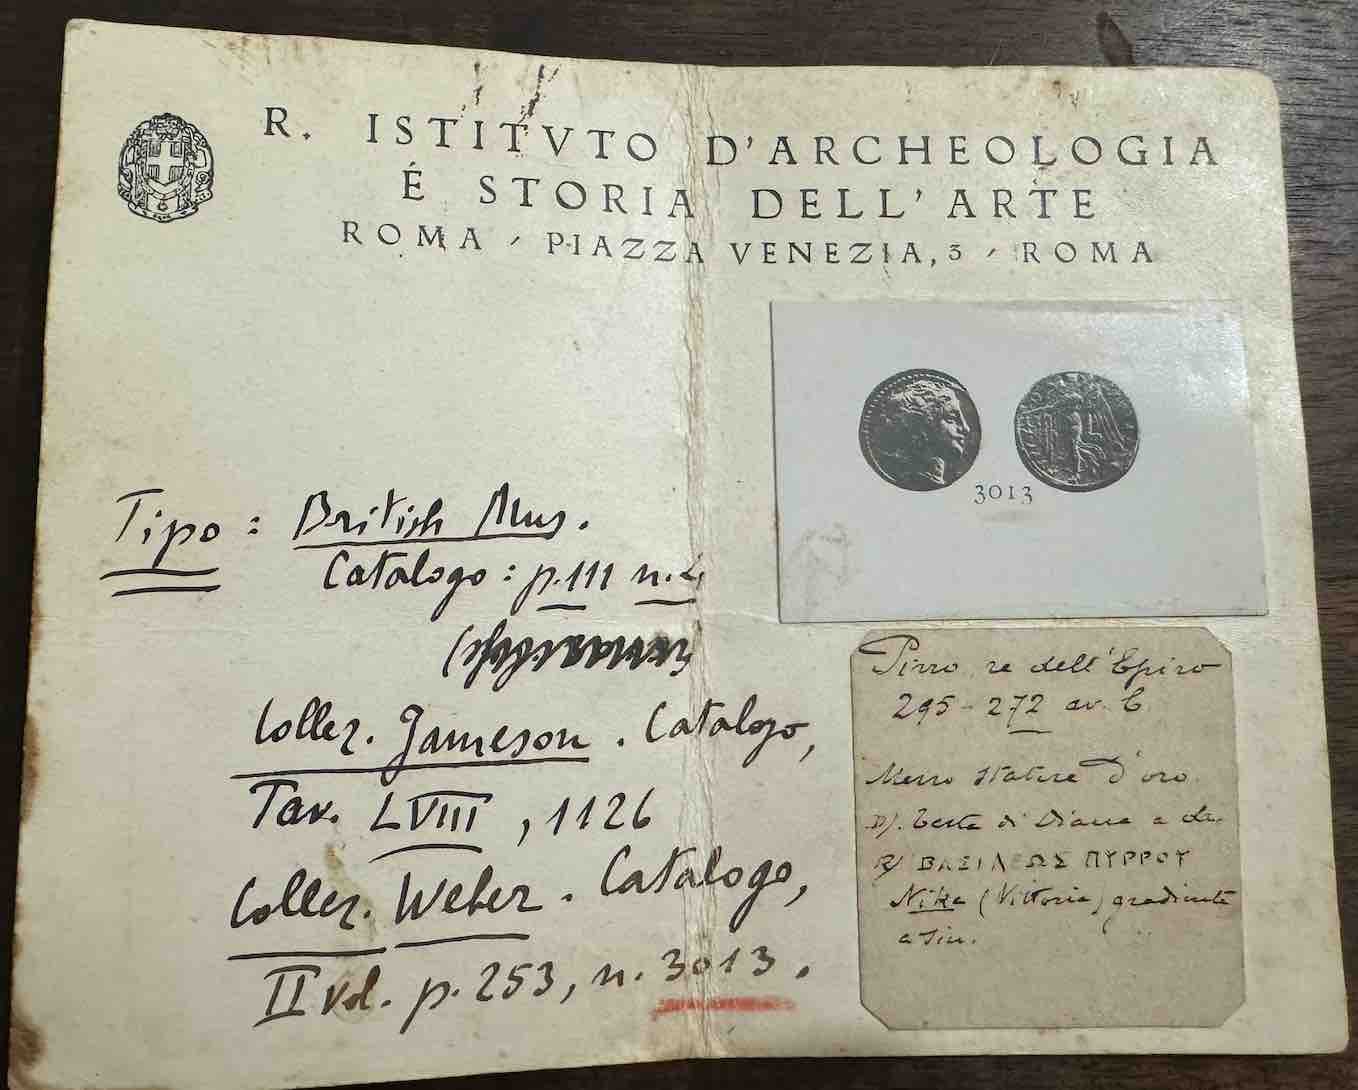 R. ISTITVTO D'ARCHEOLOGIA
É STORIA DELL'ARTE
ROMA - PIAZZA VENEZIA, 3 - ROMA
3013
Tipo: British Mus.
Catalogo: p. 111 n.
Collez. Jameson. Catalogo,
Tav. LVIII, 1126
Collez. Weber. Catalogo,
II vol. p. 253, n. 3013.
Pirro, re dell'Epiro
295-272 av. C.
Mezzo statere d'oro.
D/. Testa di Diana a ds.
R/ ΒΑΣΙΛΕΩΣ ΠΥΡΡΟΥ
Nika (Vittoria) gradiente
a sin.